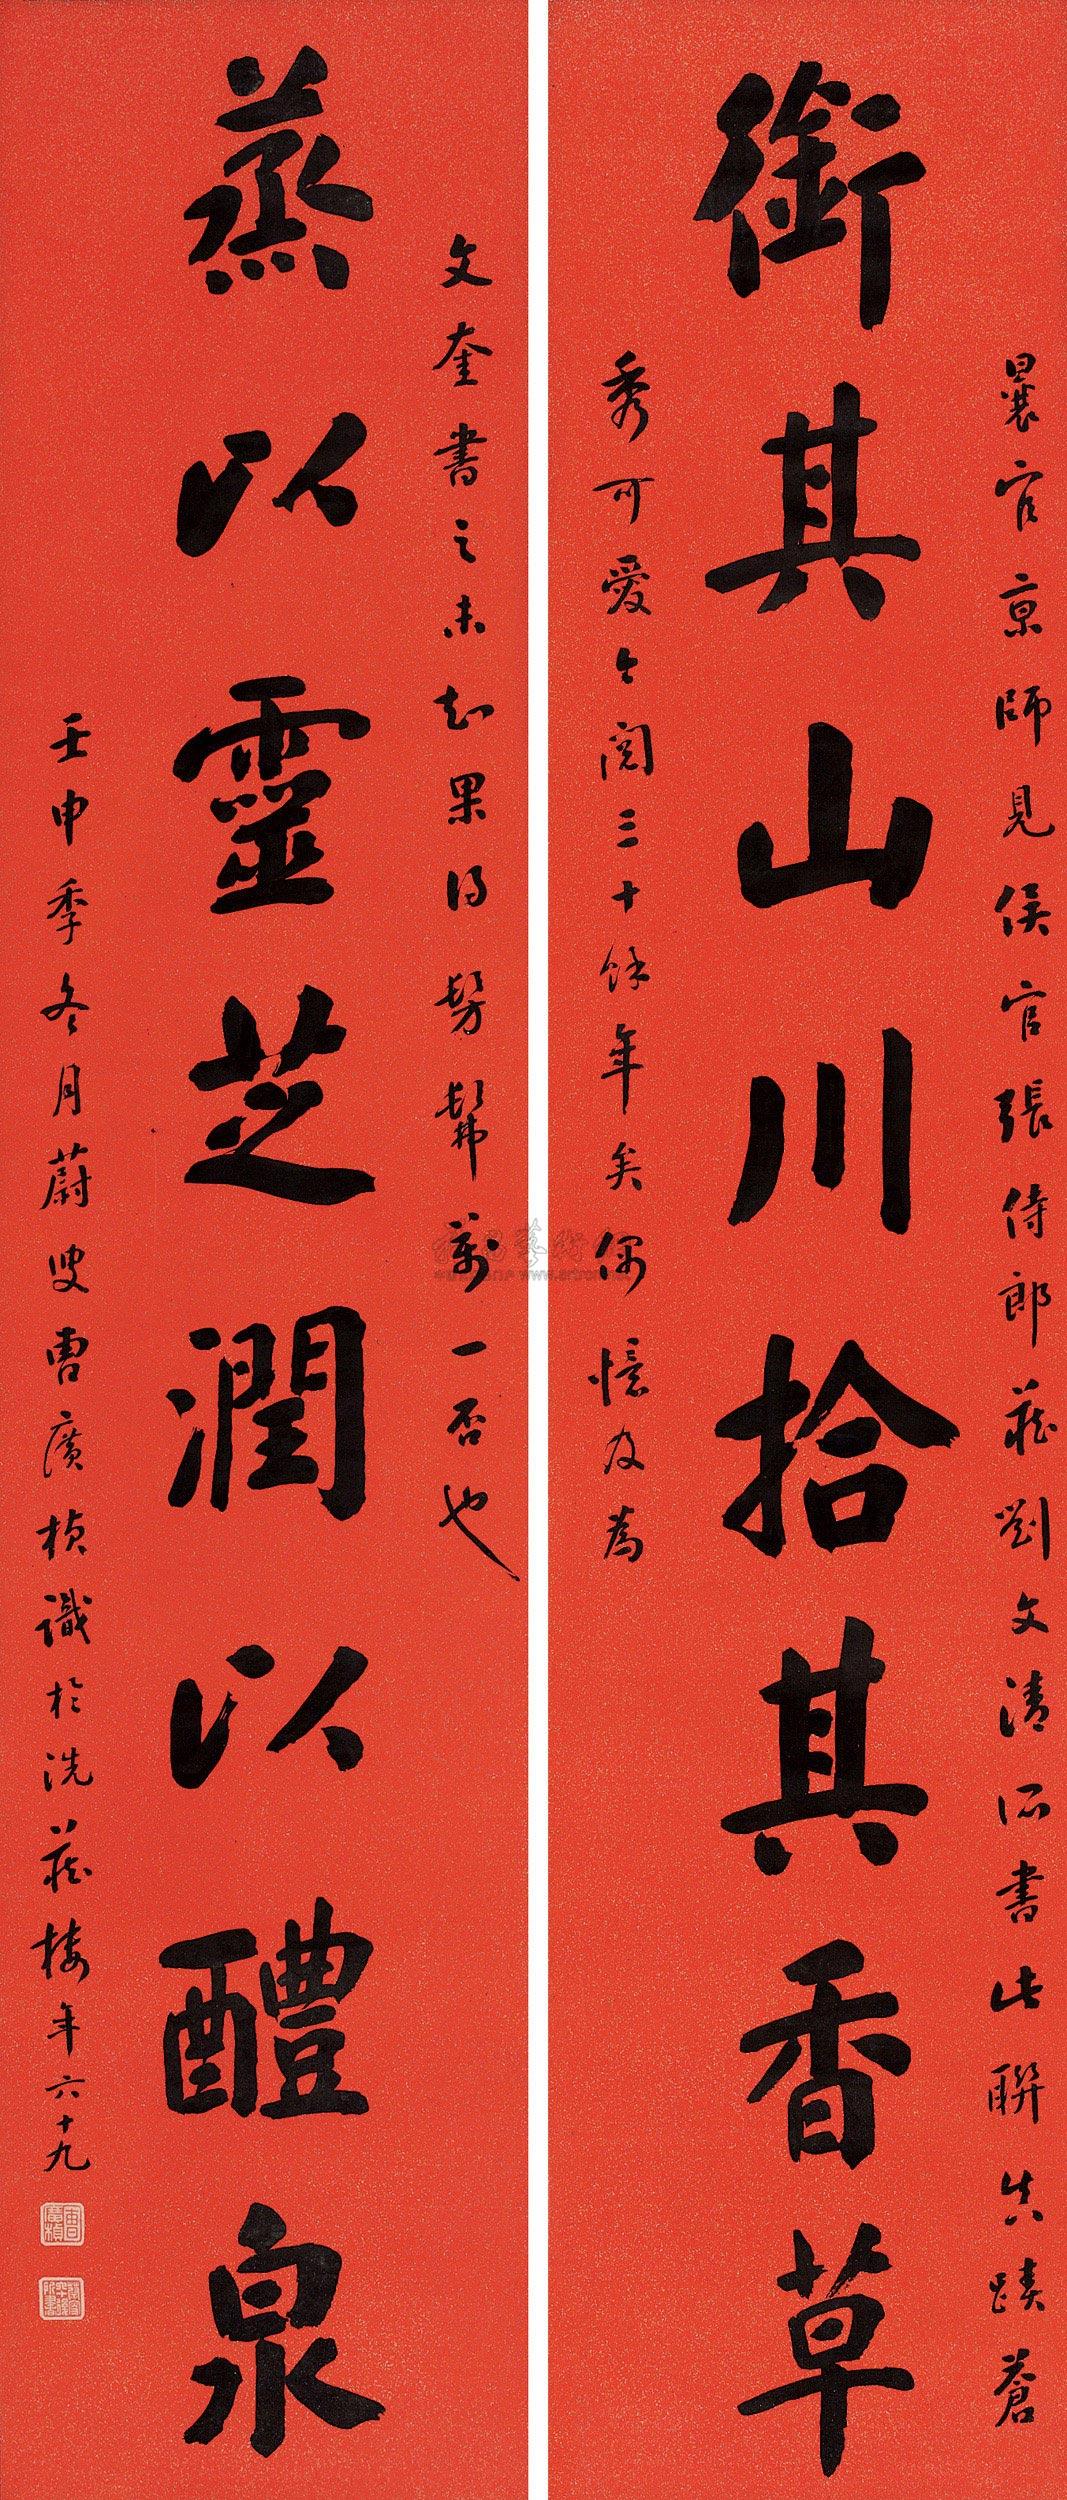 銜其山川拾其香草
曩官京師見侯官張侍郎藏劉文清所書此聯真蹟蒼
秀可愛今閱三十餘年矣偶憶及為
蒸以靈芝潤以醴泉
文奎書之未知果得髣髴萬一否也
壬申季冬月蔚叟曹廣楨識於洗藏樓年六十九
曹廣楨
www.artron.net